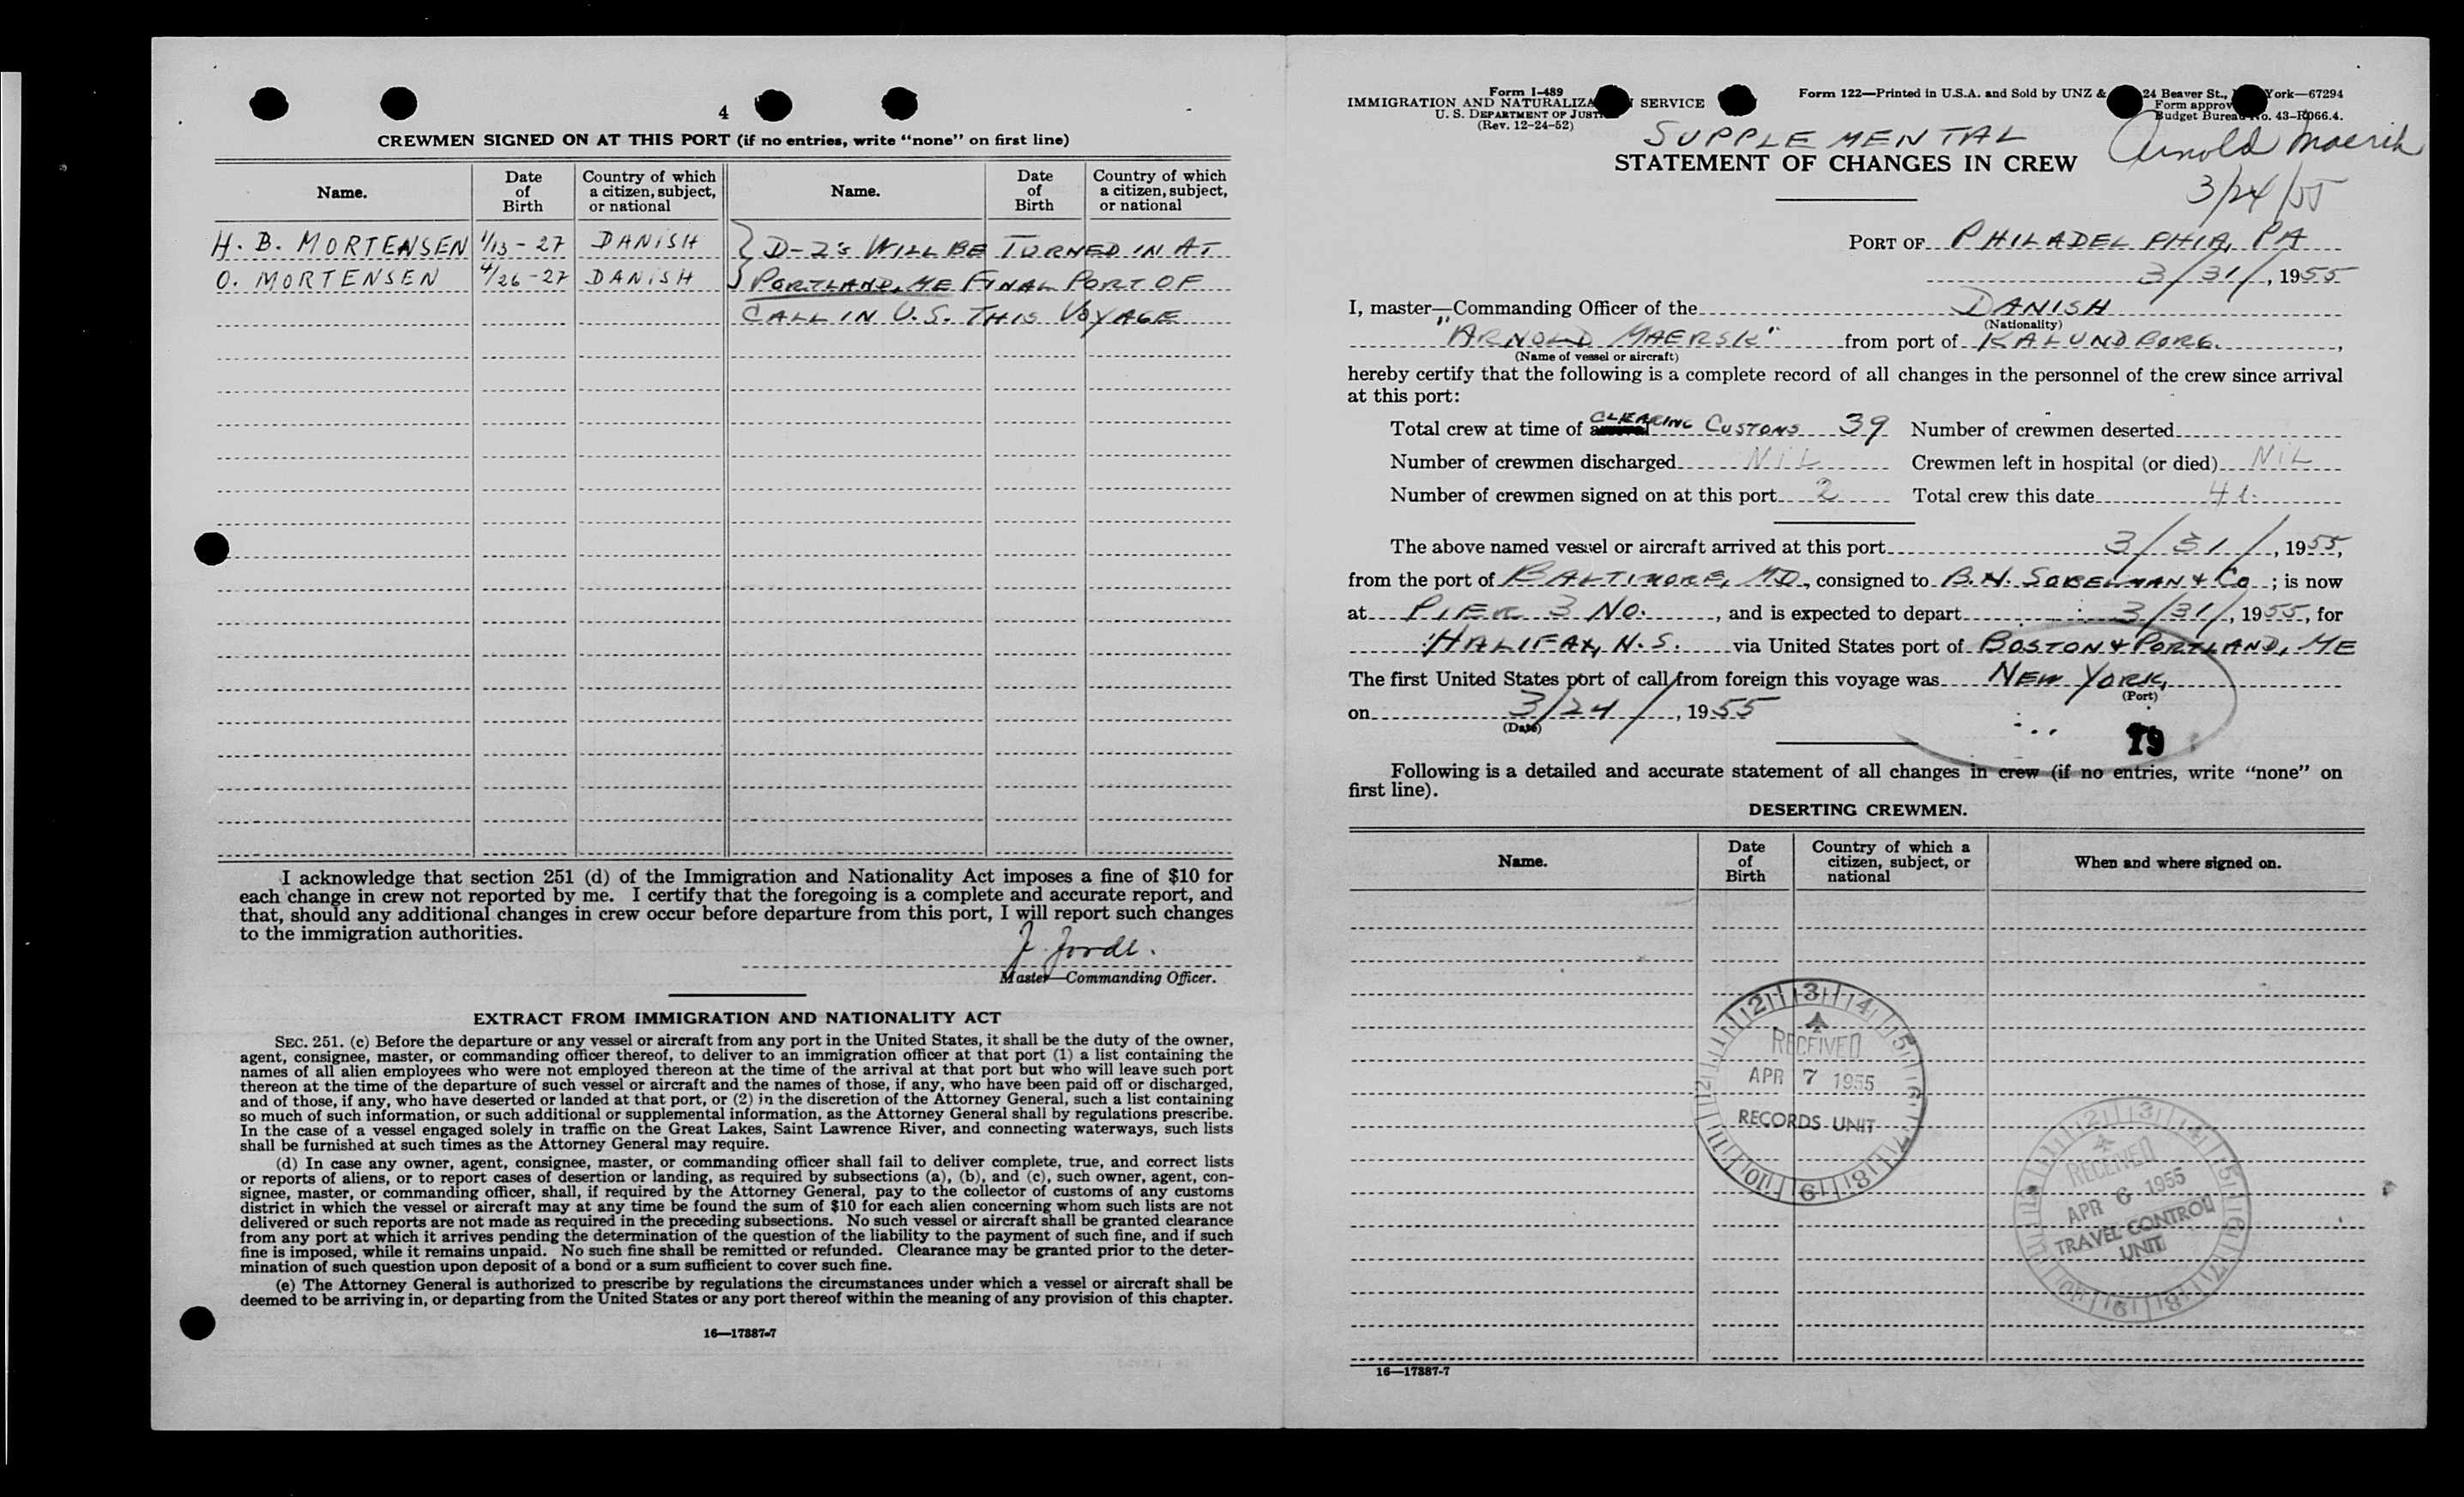 4
CREWMEN SIGNED ON AT THIS PORT (if no entries, write "none" on first line)
Name. Date of Birth Country of which a citizen, subject, or national Name. Date of Birth Country of which a citizen, subject, or national
H. B. MORTENSEN 1/13-27 DANISH D-2's WILL BE TURNED IN AT
O. MORTENSEN 4/26-27 DANISH PORTLAND, ME FINAL PORT OF
CALL IN U.S. THIS VOYAGE
I acknowledge that section 251 (d) of the Immigration and Nationality Act imposes a fine of $10 for
each change in crew not reported by me. I certify that the foregoing is a complete and accurate report, and
that, should any additional changes in crew occur before departure from this port, I will report such changes
to the immigration authorities.
Master—Commanding Officer.
EXTRACT FROM IMMIGRATION AND NATIONALITY ACT
SEC. 251. (c) Before the departure or any vessel or aircraft from any port in the United States, it shall be the duty of the owner,
agent, consignee, master, or commanding officer thereof, to deliver to an immigration officer at that port (1) a list containing the
names of all alien employees who were not employed thereon at the time of the arrival at that port but who will leave such port
thereon at the time of the departure of such vessel or aircraft and the names of those, if any, who have been paid off or discharged,
and of those, if any, who have deserted or landed at that port, or (2) in the discretion of the Attorney General, such a list containing
so much of such information, or such additional or supplemental information, as the Attorney General shall by regulations prescribe.
In the case of a vessel engaged solely in traffic on the Great Lakes, Saint Lawrence River, and connecting waterways, such lists
shall be furnished at such times as the Attorney General may require.
(d) In case any owner, agent, consignee, master, or commanding officer shall fail to deliver complete, true, and correct lists
or reports of aliens, or to report cases of desertion or landing, as required by subsections (a), (b), and (c), such owner, agent, con-
signee, master, or commanding officer, shall, if required by the Attorney General, pay to the collector of customs of any customs
district in which the vessel or aircraft may at any time be found the sum of $10 for each alien concerning whom such lists are not
delivered or such reports are not made as required in the preceding subsections. No such vessel or aircraft shall be granted clearance
from any port at which it arrives pending the determination of the question of the liability to the payment of such fine, and if such
fine is imposed, while it remains unpaid. No such fine shall be remitted or refunded. Clearance may be granted prior to the deter-
mination of such question upon deposit of a bond or a sum sufficient to cover such fine.
(e) The Attorney General is authorized to prescribe by regulations the circumstances under which a vessel or aircraft shall be
deemed to be arriving in, or departing from the United States or any port thereof within the meaning of any provision of this chapter.
16—17887-7
Form I-489
IMMIGRATION AND NATURALIZA SERVICE
U. S. DEPARTMENT OF JUST
(Rev. 12-24-52)
Form 122—Printed in U.S.A. and Sold by UNZ & 24 Beaver St., York—67294
Form approv
Budget Bureau No. 43-R066.4.
SUPPLEMENTAL
STATEMENT OF CHANGES IN CREW
Arnold Maersk
3/24/55
PORT OF PHILADELPHIA, PA
3/31/, 1955
I, master—Commanding Officer of the DANISH
(Nationality)
"ARNOLD MAERSK" from port of KALUNDBORG.,
(Name of vessel or aircraft)
hereby certify that the following is a complete record of all changes in the personnel of the crew since arrival
at this port:
Total crew at time of CLEARING CUSTOMS 39 Number of crewmen deserted
Number of crewmen discharged NIL Crewmen left in hospital (or died) NIL
Number of crewmen signed on at this port 2 Total crew this date 41.
The above named vessel or aircraft arrived at this port 3/31/, 1955,
from the port of BALTIMORE, MD, consigned to B.H. SOBELMAN & Co; is now
at PIER 3 NO., and is expected to depart 3/31/, 1955, for
HALIFAX, N.S. via United States port of BOSTON & PORTLAND, ME
The first United States port of call from foreign this voyage was NEW YORK,
(Port)
on 3/24/, 1955
(Date)
79
Following is a detailed and accurate statement of all changes in crew (if no entries, write "none" on
first line).
DESERTING CREWMEN.
Name. Date of Birth Country of which a citizen, subject, or national When and where signed on.
RECEIVED
APR 7 1955
RECORDS UNIT
RECEIVED
APR 6 1955
TRAVEL CONTROL
UNIT
16—17887-7